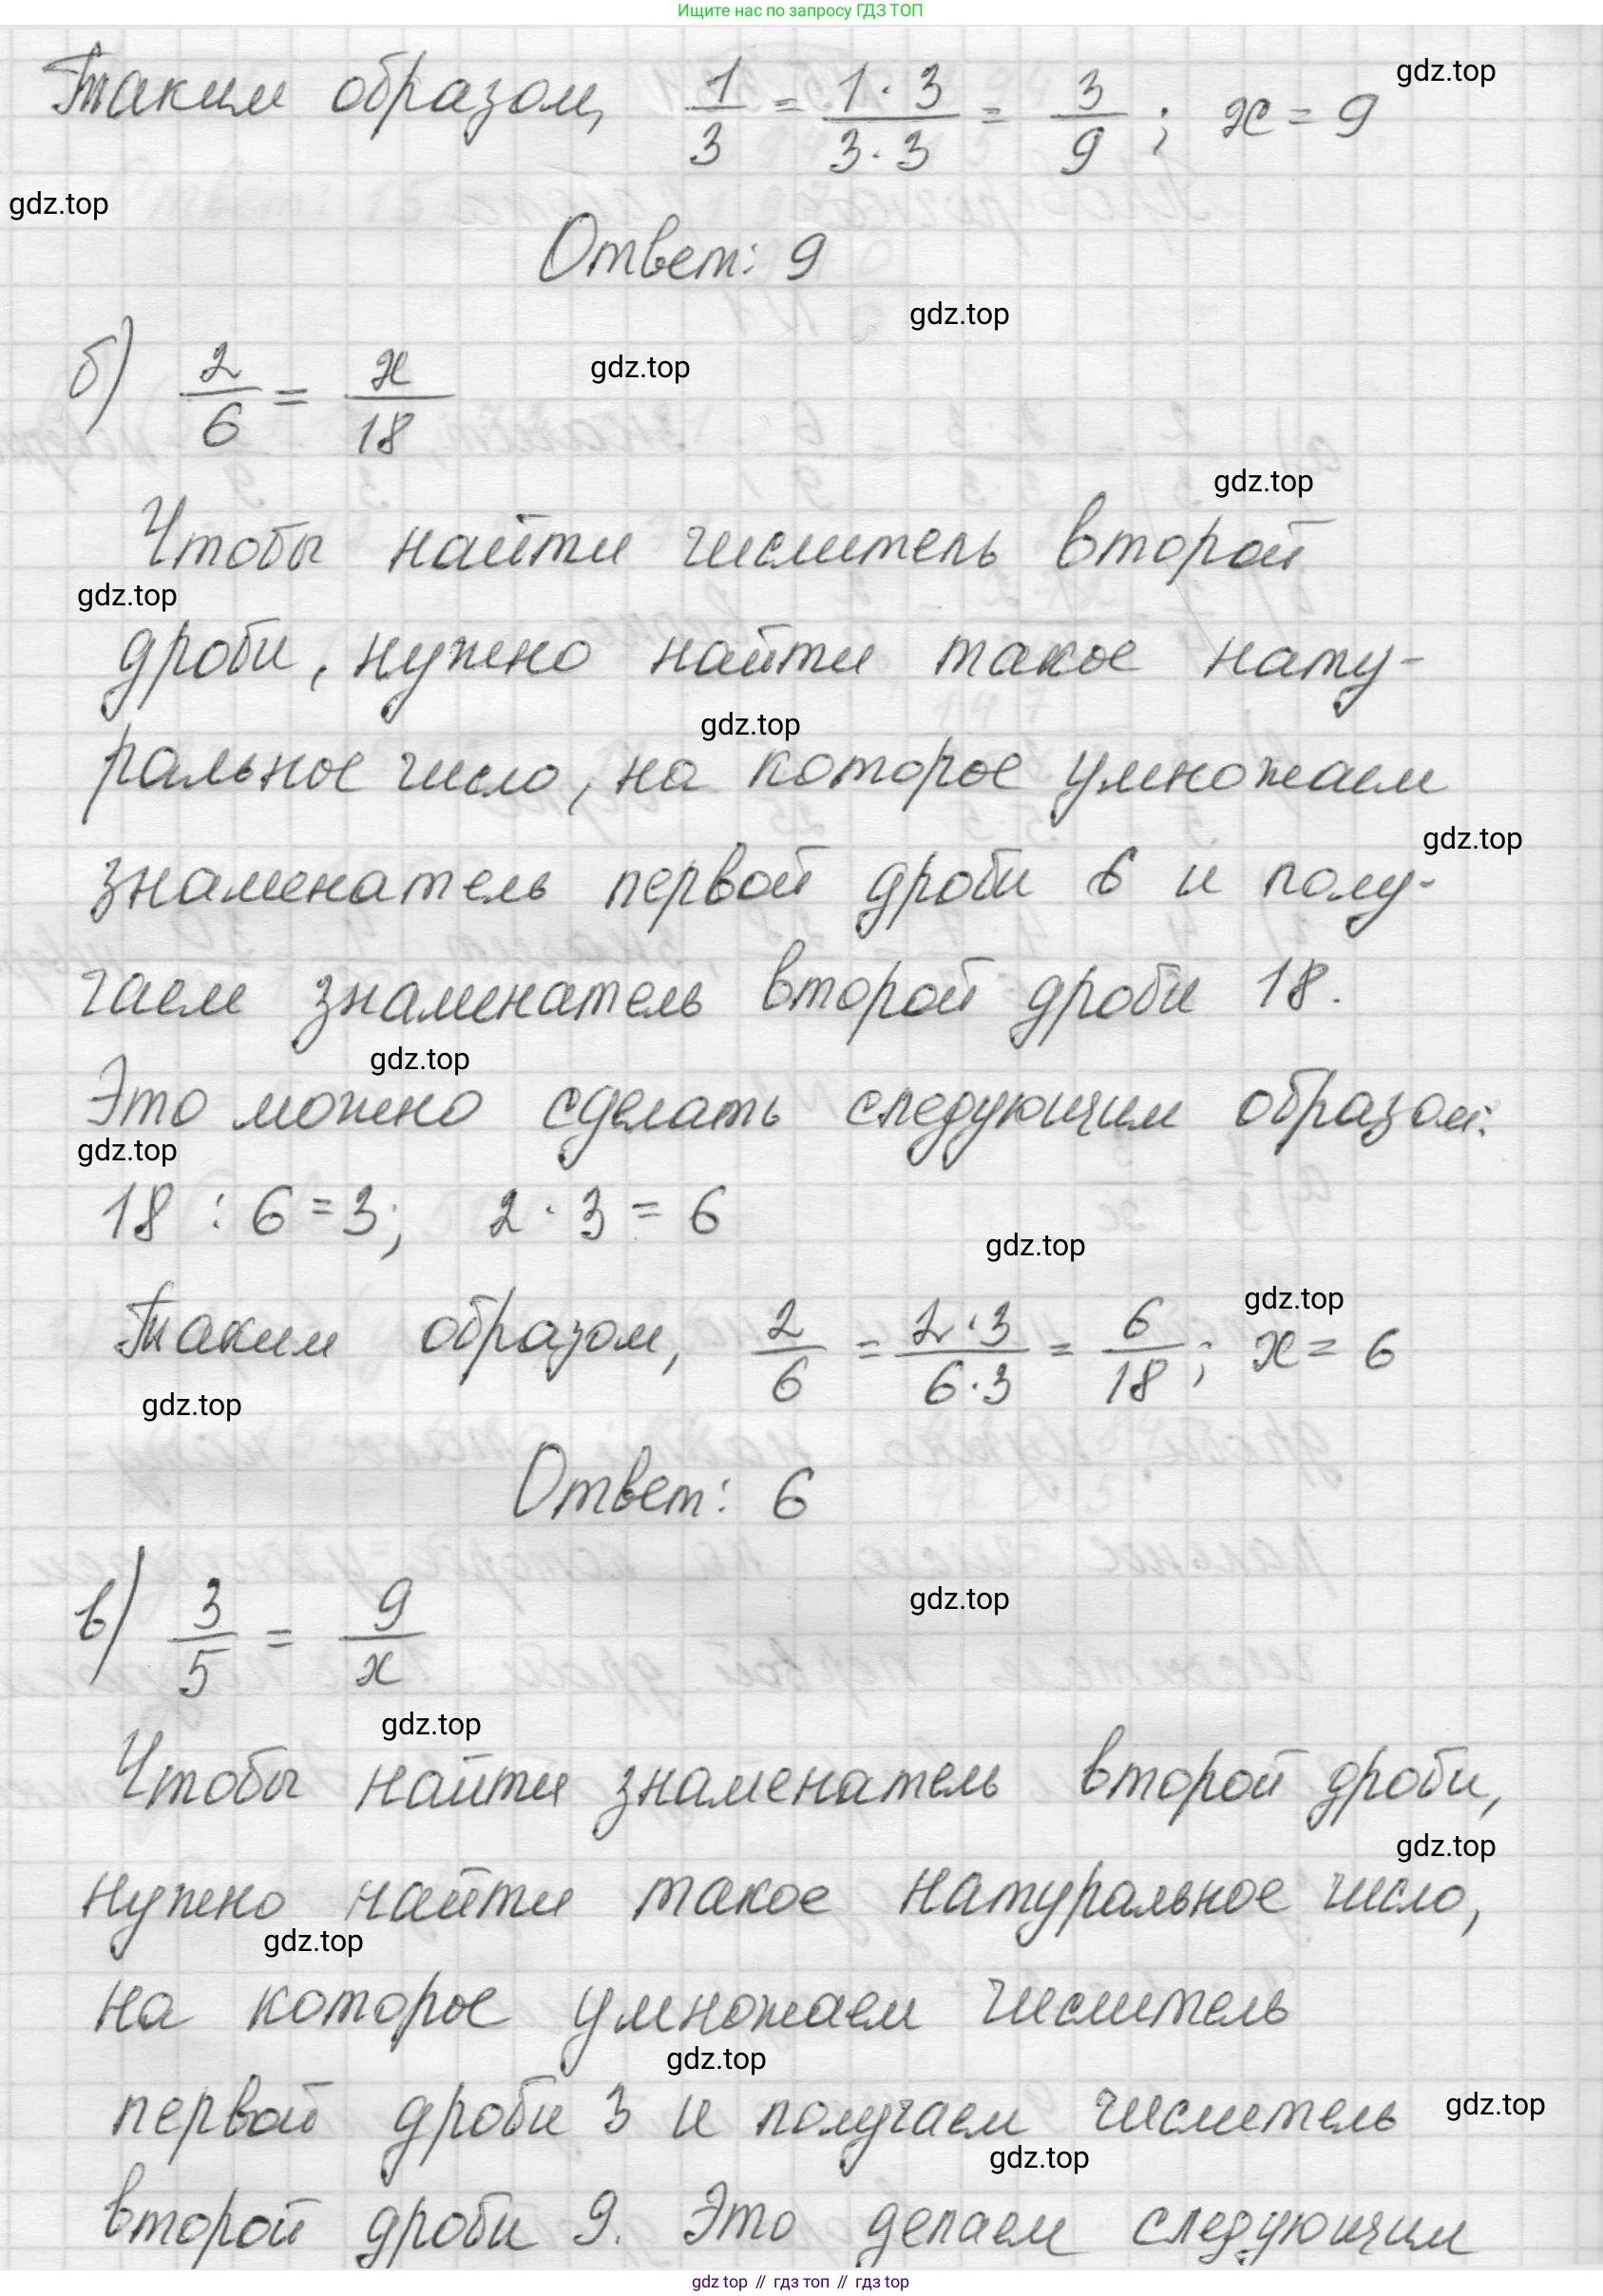 Ищите нас по запросу ГДЗ ТОП
Таким образом, 1/3 = 1·3/3·3 = 3/9 ; x = 9
gdz.top
gdz.top
Ответ: 9
gdz.top
б) 2/6 = x/18
gdz.top
gdz.top
Чтобы найти числитель второй
gdz.top
дроби, нужно найти такое нату-
gdz.top
ральное число, на которое умножаем
gdz.top
знаменатель первой дроби 6 и полу-
чаем знаменатель второй дроби 18.
gdz.top
Это можно сделать следующим образом:
gdz.top
18 : 6 = 3; 2 · 3 = 6
gdz.top
gdz.top
Таким образом, 2/6 = 2·3/6·3 = 6/18 ; x = 6
gdz.top
Ответ: 6
в) 3/5 = 9/x
gdz.top
gdz.top
Чтобы найти знаменатель второй дроби,
gdz.top
нужно найти такое натуральное число,
gdz.top
на которое умножаем числитель
gdz.top
первой дроби 3 и получаем числитель
gdz.top
gdz.top
второй дроби 9. Это делаем следующим
gdz top // гдз топ // gdz.top